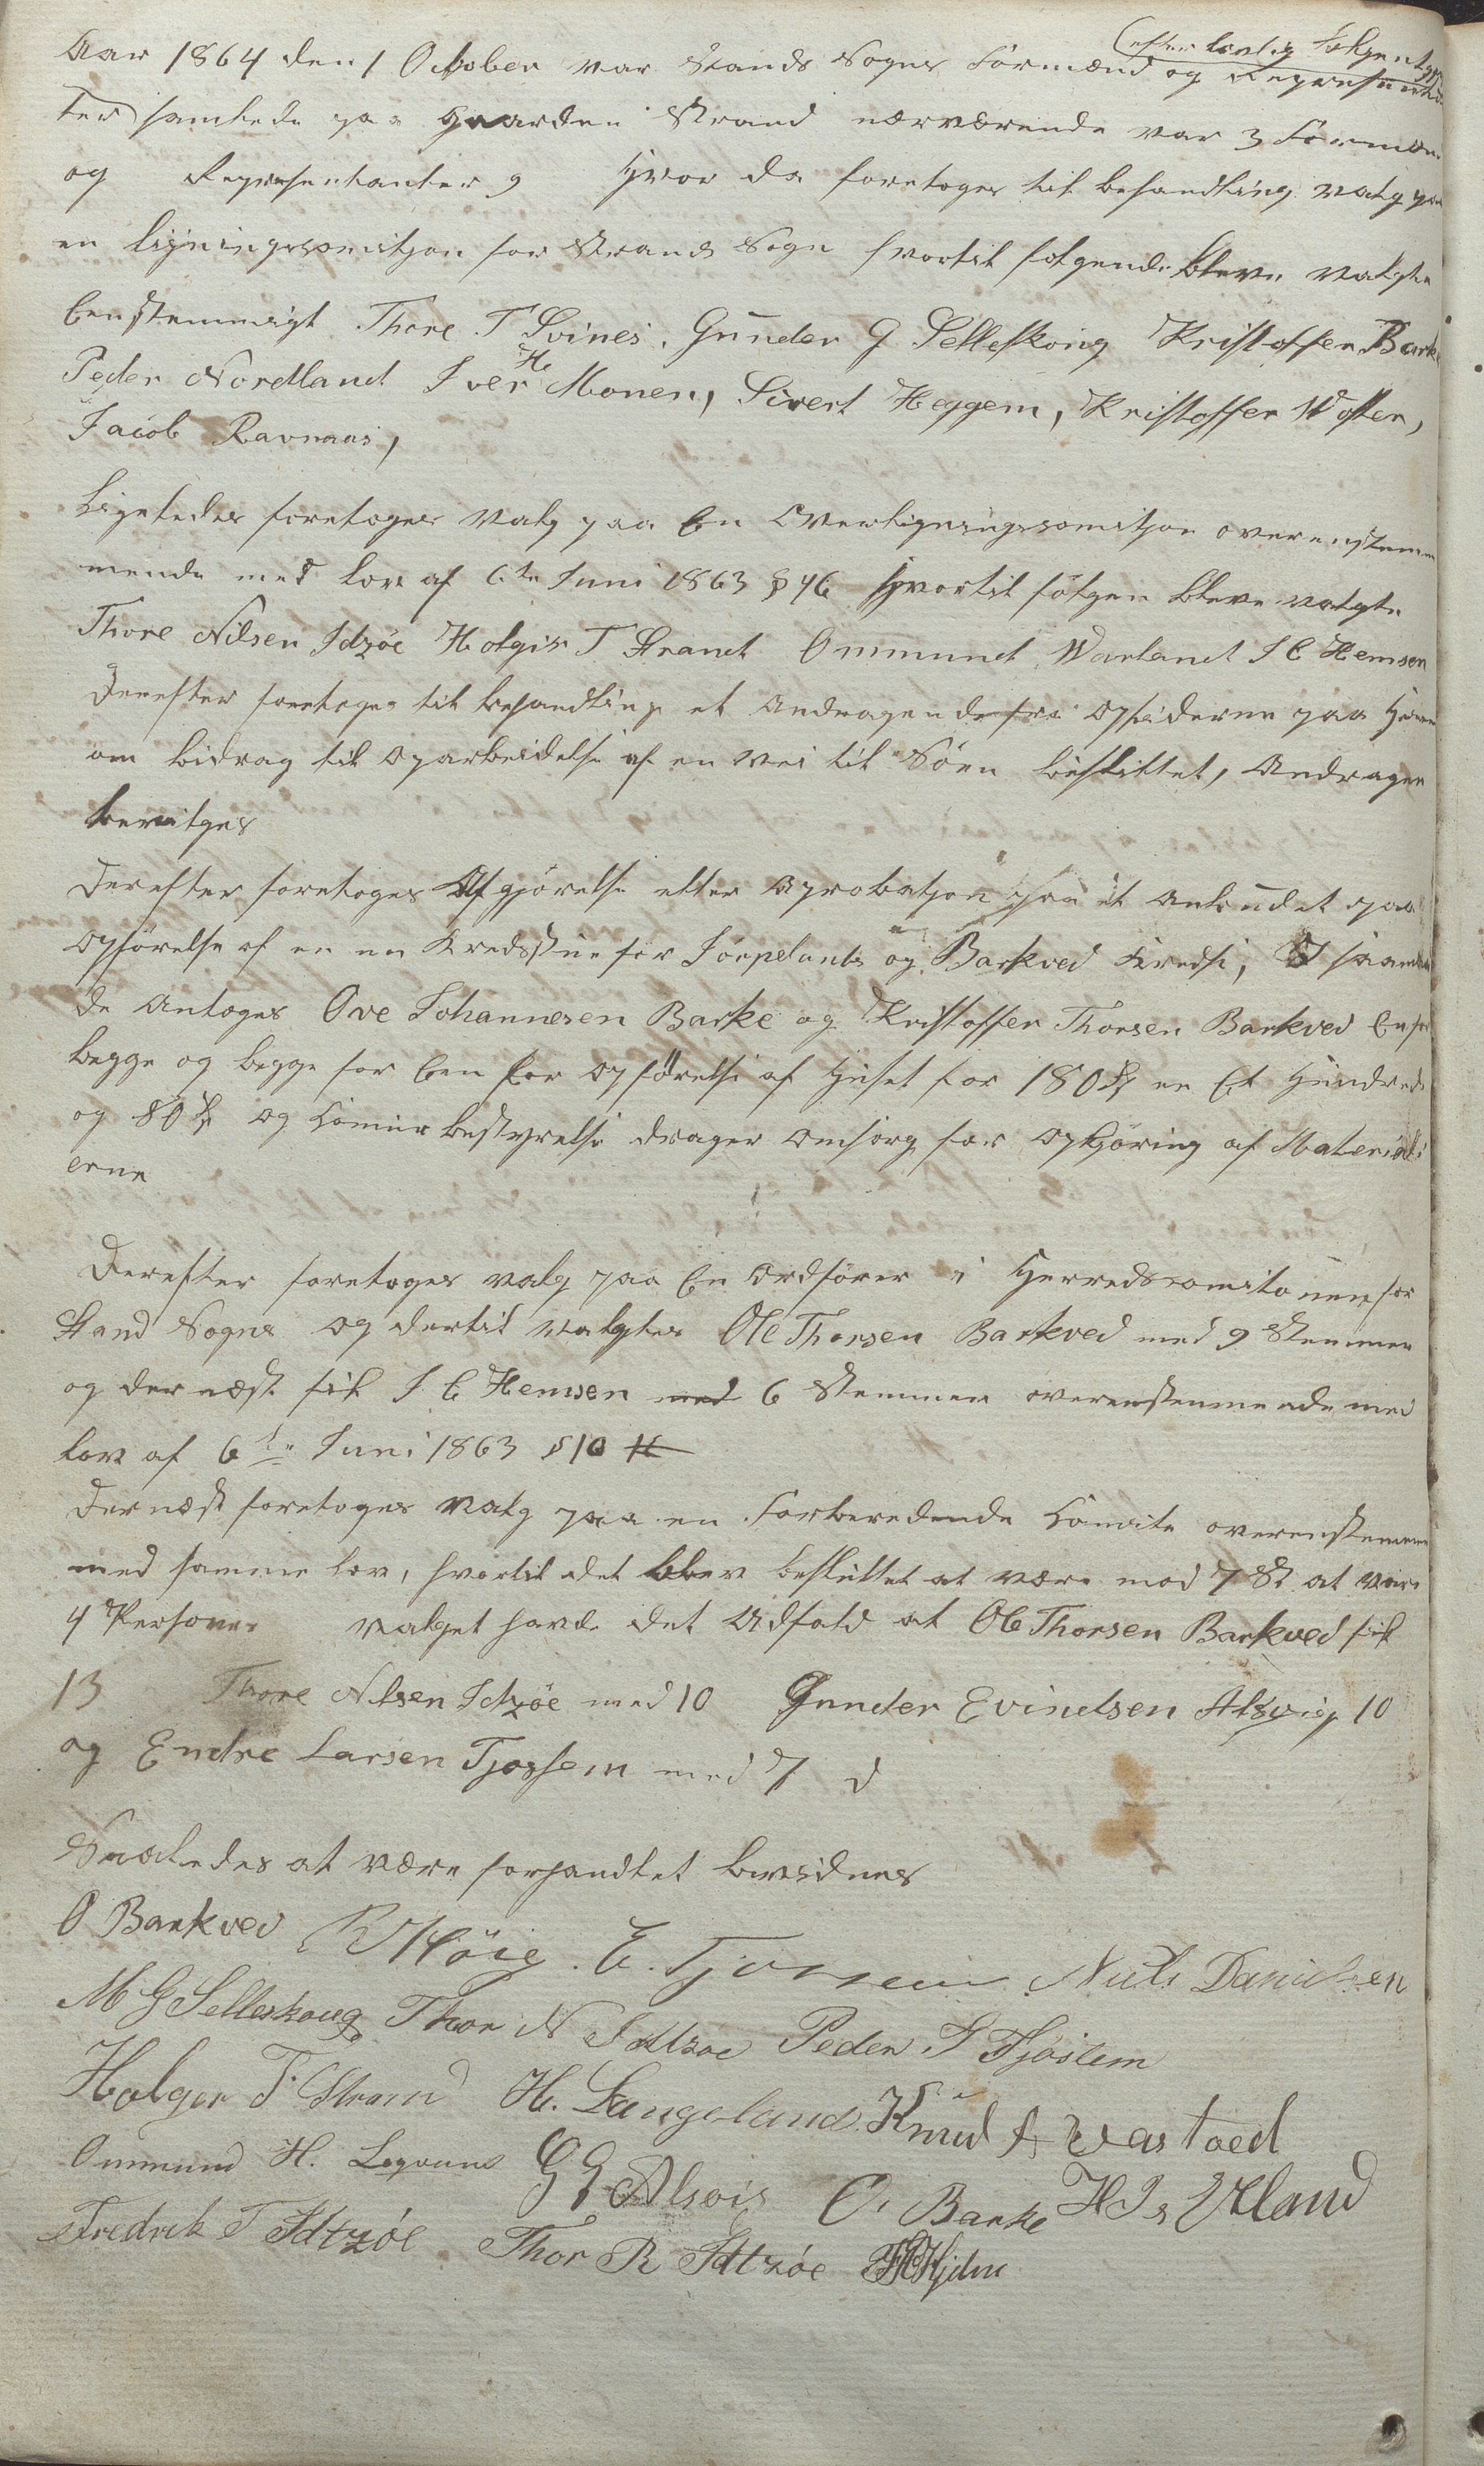 (efter lovlig
Aar 1864 den 1 October var Stands Sogns Formænd og Repræsentan
ter samlede paa Gaarden Strand nærværende var 3 Formæn
og Representanter 9 Hvor da foretoges til behandling valg paa
en ligningscomitjon for Strand Sogn hvortil følgende bleve valgte
Eenstemmigt Thore T Svines, Gunder G Selleskoug Kristoffer Barke
Peder Nordland Iver H Monen, Sivert Heggem, Kristoffer Wolster,
Jacob Ravnaas,
Ligeledes foretoges Valg paa En Overligningscomitjon overenstem
mende med lov af 6te Juni 1863 § 46 Hvortil følgen bleve valgte
Thore Nilsen Idzöe Holger T Strand Ommund Warland I C Hemsen
Derefter foretoges til behandling et Andragende fra Opsiderne paa
om bidrag til Oparbeidelse af en Vei til Söen besluttet, Andragen
bevilges
Derefter foretoges Afgjörelse eller Aprobatjon paa et Anbudet paa
Opförelse af en en Kredsstue for Jörpelands og Barkved Kredse,
de Antoges Ove Johannesen Barke og Kristoffer Thorsen Barkved En for
begge og begge for Een for Opförelse af Huset for 180 Sp er Et Hundrede
og 80 Sp og Comunbestyrelse drager Omsorg for Opkjöring af Materiali
erne
Derefter foretoges valg paa En Ordförer i Herredscomitonen for
Stand Sogns og dertil valgtes Ole Thorsen Barkved med 9 Stemmer
og dernæst fik I C Hemsen med 6 Stemmer overenstemmende med
lov af 6te Juni 1863 § 10
Dernæst foretoges Valg paa en Forberedende Comite overenstemmen
med samme lov, hvortil det blev besluttet at være med 7 St at være
4 Personer valget havde det Udfald at Ole Thorsen Barkved fik
13 Thore Nilsen Idzöe med 10 Gunder Evindsen Alsvig 10
og Endre Larsen Tjossem med 7 d
Saaledes at være forhandlet bevidnes
O Barkved R Höie. E. Tjossem Niels Danielsen
M G Selleskoug Thor N Idtzoe Peder S Fjöslem
Holger T. Strand H. Langeland Knud A Vastved
Ommund H. Legvam G E Alsvig O. Barke H I Ulland
Fredrik T Idtzöe Thor R Idtzöe